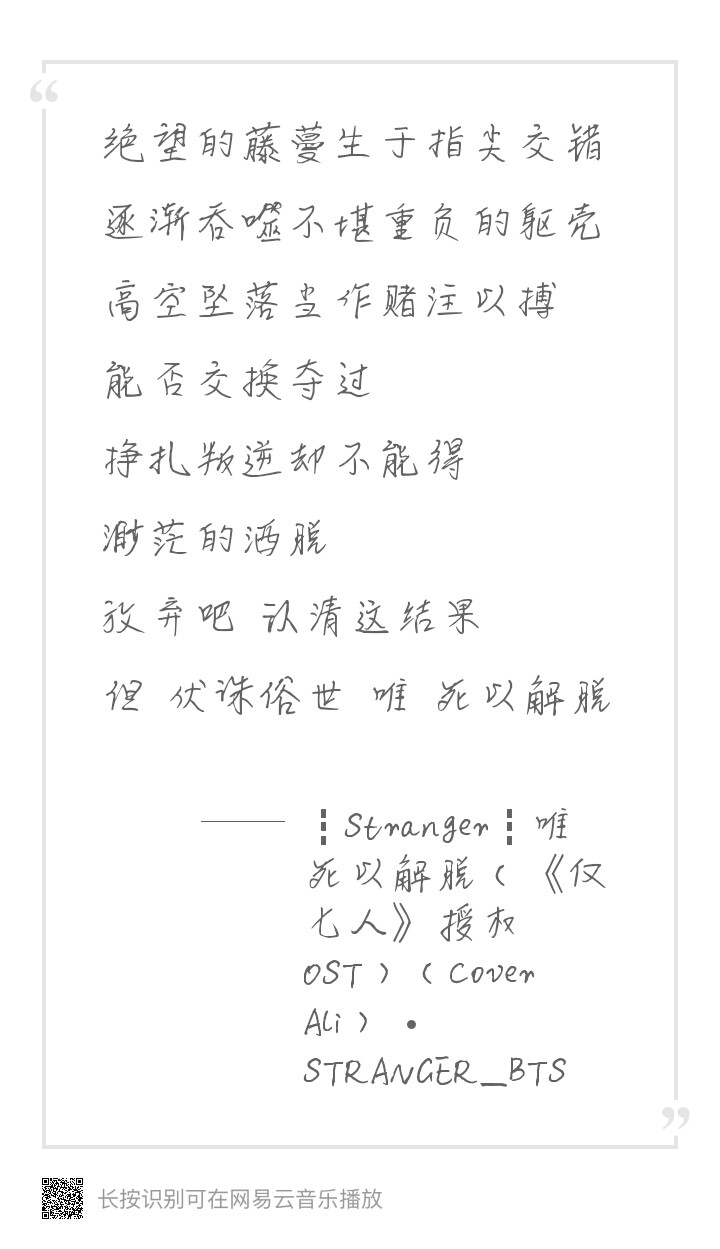 “
绝望的藤蔓生于指尖交错
逐渐吞噬不堪重负的躯壳
高空坠落当作赌注以搏
能否交换夺过
挣扎叛逆却不能得
渺茫的洒脱
放弃吧 认清这结果
但 伏诛俗世 唯 死以解脱
—— ┇Stranger┇唯
死以解脱（《仅
七人》授权
OST）（Cover
Ali）·
STRANGER_BTS
”
长按识别可在网易云音乐播放